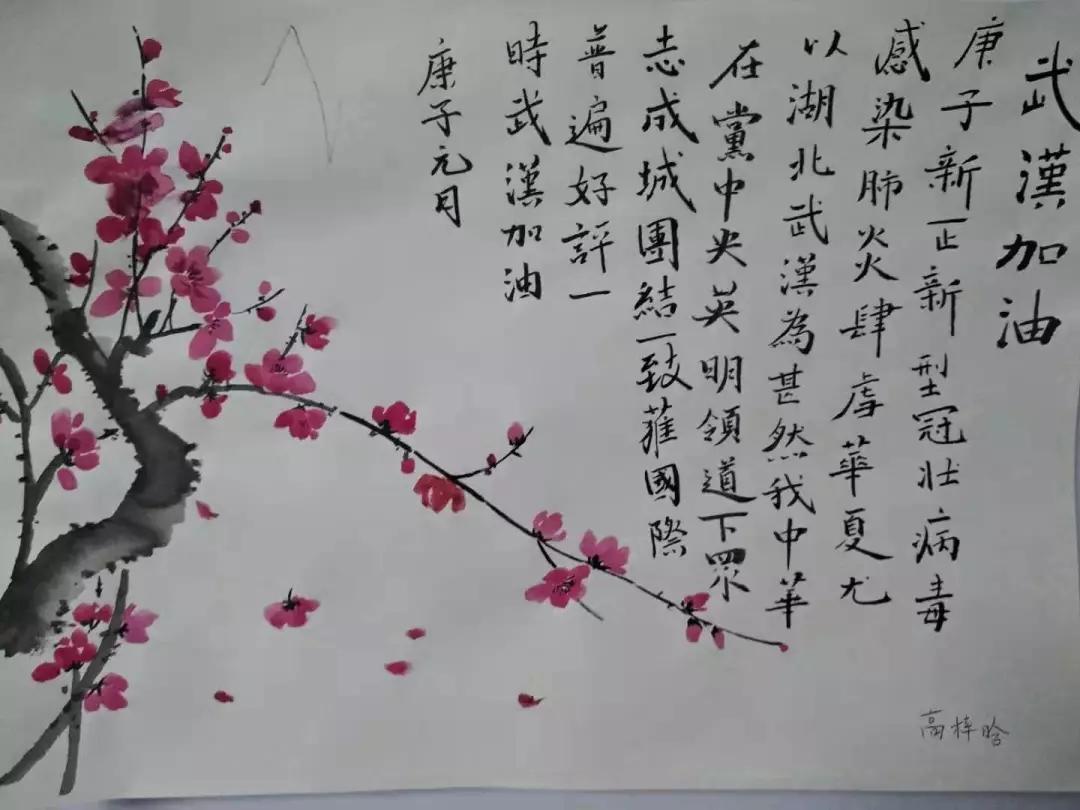 武漢加油
庚子新正新型冠壯病毒
感染肺炎肆虐華夏尤
以湖北武漢為甚然我中華
在黨中央英明領道下眾
志成城團結一致國際
普遍好評一
時武漢加油
庚子元月
高梓晗